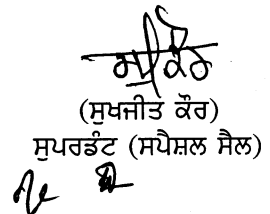 (ਸੁਖਜੀਤ ਕੌਰ)
ਸੁਪਰਡੰਟ (ਸਪੈਸ਼ਲ ਸੈਲ)